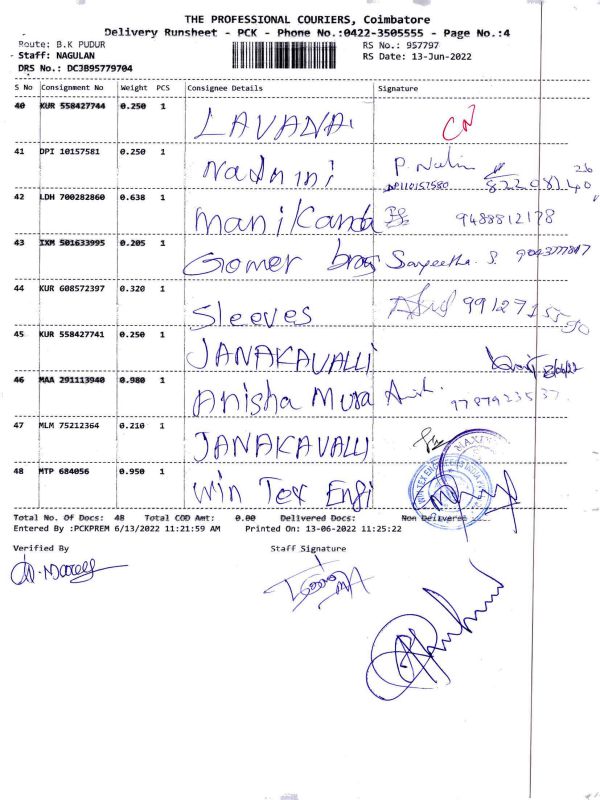 THE PROFESSIONAL COURIERS, Coimbatore
Delivery Runsheet - PCK - Phone No.:0422-3505555 - Page No.:4
Route: B.K PUDUR RS No.: 957797
Staff: NAGULAN RS Date: 13-Jun-2022
DRS No.: DCJB95779704
S No Consignment No Weight PCS Consignee Details Signature
40 KUR 558427744 0.250 1 LAVANA CN
41 DPI 10157581 0.250 1 Nadmini
42 LDH 700282860 0.638 1 Manikanda 9488812178
43 IXM 501633995 0.205 1 Gomer bros Sangeetha. S.
44 KUR 608572397 0.320 1 Sleeves
45 KUR 558427741 0.250 1 JANAKAVALLI
46 MAA 291113940 0.980 1 Anisha Mura
47 MLM 75212364 0.210 1 JANAKAVALLI
48 MTP 684056 0.950 1 Win Tex Engi
Total No. Of Docs: 48 Total COD Amt: 0.00 Delivered Docs: Non Delivered
Entered By :PCKPREM 6/13/2022 11:21:59 AM Printed On: 13-06-2022 11:25:22
Verified By Staff Signature